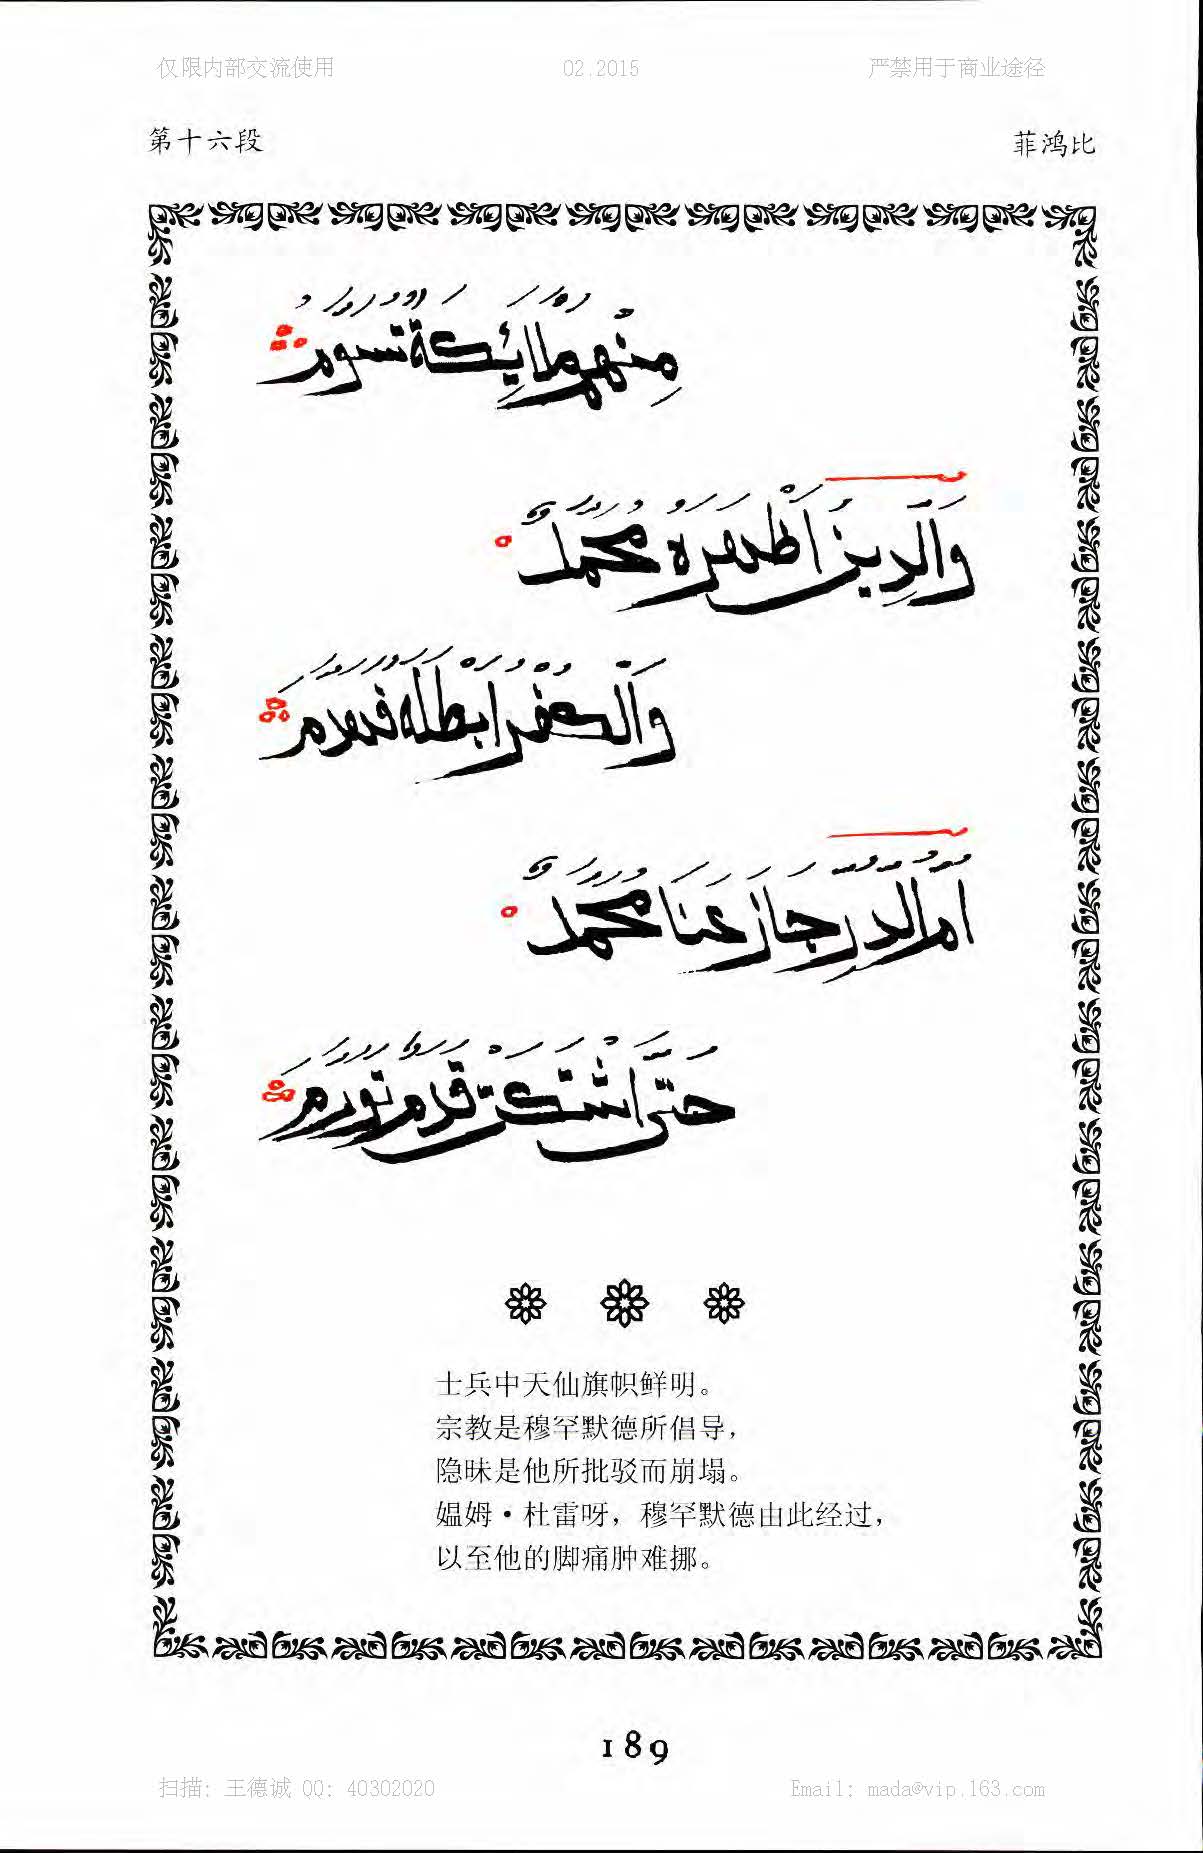 仅限内部交流使用 02.2015 严禁用于商业途径
第十六段 菲鸿比
مِنْهُمْ مَلَائِكَةٌ تُسَوِّمُ
وَالدِّينُ أَظْهَرَهُ مُحَمَّدٌ
وَالْكُفْرُ أَبْطَلَهُ فَهُدِمَ
أُمَّ الدُّرِّ جَازَ عَنَّا مُحَمَّدٌ
حَتَّى اشْتَكَتْ قَدَمٌ تَوَرَّمَ
士兵中天仙旗帜鲜明。
宗教是穆罕默德所倡导，
隐昧是他所批驳而崩塌。
媪姆·杜雷呀，穆罕默德由此经过，
以至他的脚痛肿难挪。
189
扫描: 王德诚 QQ: 40302020 Email: mada@vip.163.com